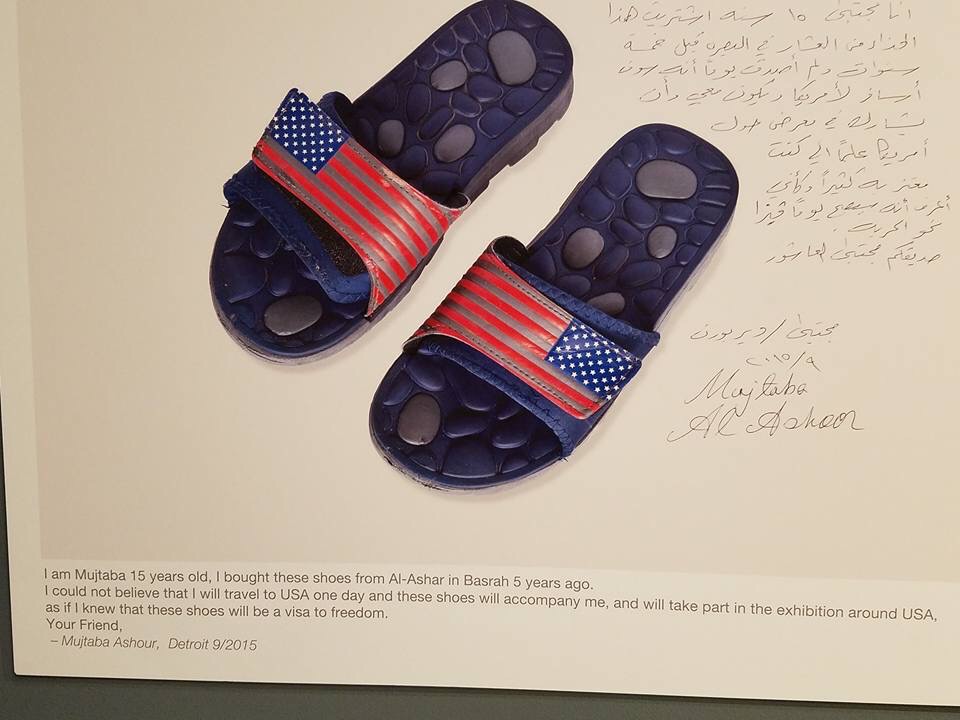 انا مجتبى ١٥ سنه اشتريت هذا
الحذاء من العشار في البصره قبل خمسة
سنوات ولم أصدق يوماً أنه سوف
أسافر لأمريكا ويكون معي وأن
يشارك في معرض حول
أمريكا علماً اني كنت
معتز به كثيراً وكأني
أعرف أنه سيصبح يوماً
نحو الحرية
صديقكم مجتبى العاشور
مجتبى / ديربورن
٢٠١٥/٩
Mujtaba
Al Ashoor
I am Mujtaba 15 years old, I bought these shoes from Al-Ashar in Basrah 5 years ago.
I could not believe that I will travel to USA one day and these shoes will accompany me, and will take part in the exhibition around USA,
as if I knew that these shoes will be a visa to freedom.
Your Friend,
– Mujtaba Ashour, Detroit 9/2015